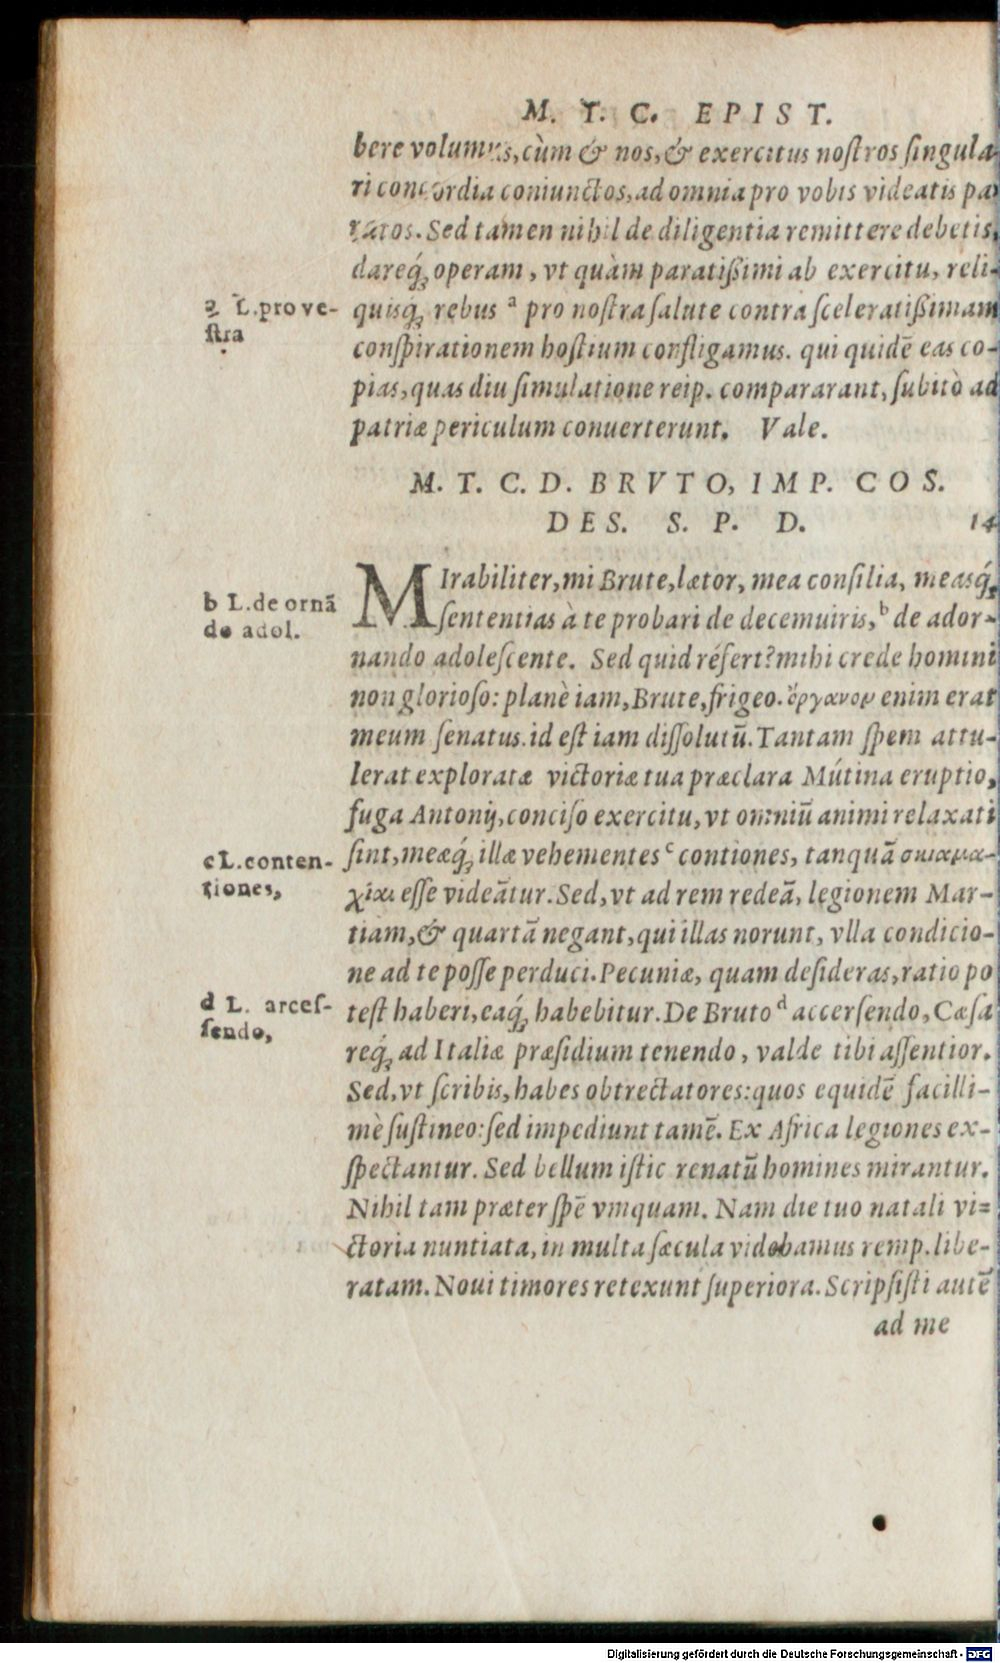 M. T. C. EPIST.
bere volumus, cùm & nos, & exercitus nostros singula-
ri concordia coniunctos, ad omnia pro vobis videatis pa
ratos. Sed tamen nihil de diligentia remittere debetis,
dareq́; operam, vt quàm paratißimi ab exercitu, reli-
a L. pro ve-
stra
quisq́; rebus ᵃ pro nostra salute contra sceleratißimam
conspirationem hostium confligamus. qui quidē eas co-
pias, quas diu simulatione reip. compararant, subitò ad
patriæ periculum conuerterunt. Vale.
M. T. C. D. BRVTO, IMP. COS.
DES. S. P. D. 14
MIrabiliter, mi Brute, lætor, mea consilia, measq́;
b L. de ornā
do adol.
sententias à te probari de decemuiris, ᵇ de ador-
nando adolescente. Sed quid réfert? mihi crede homini
non glorioso: planè iam, Brute, frigeo. ὄργανον enim erat
meum senatus. id est iam dissolutū. Tantam spem attu-
lerat exploratæ victoriæ tua præclara Mútina eruptio,
fuga Antonij, conciso exercitu, vt omniū animi relaxati
c L. conten-
tiones,
sint, meæq́; illæ vehementes ᶜ contiones, tanquā σκιαμα-
χίαι esse videātur. Sed, vt ad rem redeā, legionem Mar-
tiam, & quartā negant, qui illas norunt, vlla condicio-
ne ad te posse perduci. Pecuniæ, quam desideras, ratio po
d L. arces-
sendo,
test haberi, eaq́; habebitur. De Bruto ᵈ accersendo, Cæsa
req́; ad Italiæ præsidium tenendo, valde tibi assentior.
Sed, vt scribis, habes obtrectatores: quos equidē facilli-
mè sustineo: sed impediunt tamē. Ex Africa legiones ex-
spectantur. Sed bellum istic renatū homines mirantur.
Nihil tam præter spē vmquam. Nam die tuo natali vi=
ctoria nuntiata, in multa sæcula videbamus remp. libe-
ratam. Noui timores retexunt superiora. Scripsisti autē
ad me
Digitalisierung gefördert durch die Deutsche Forschungsgemeinschaft - DFG